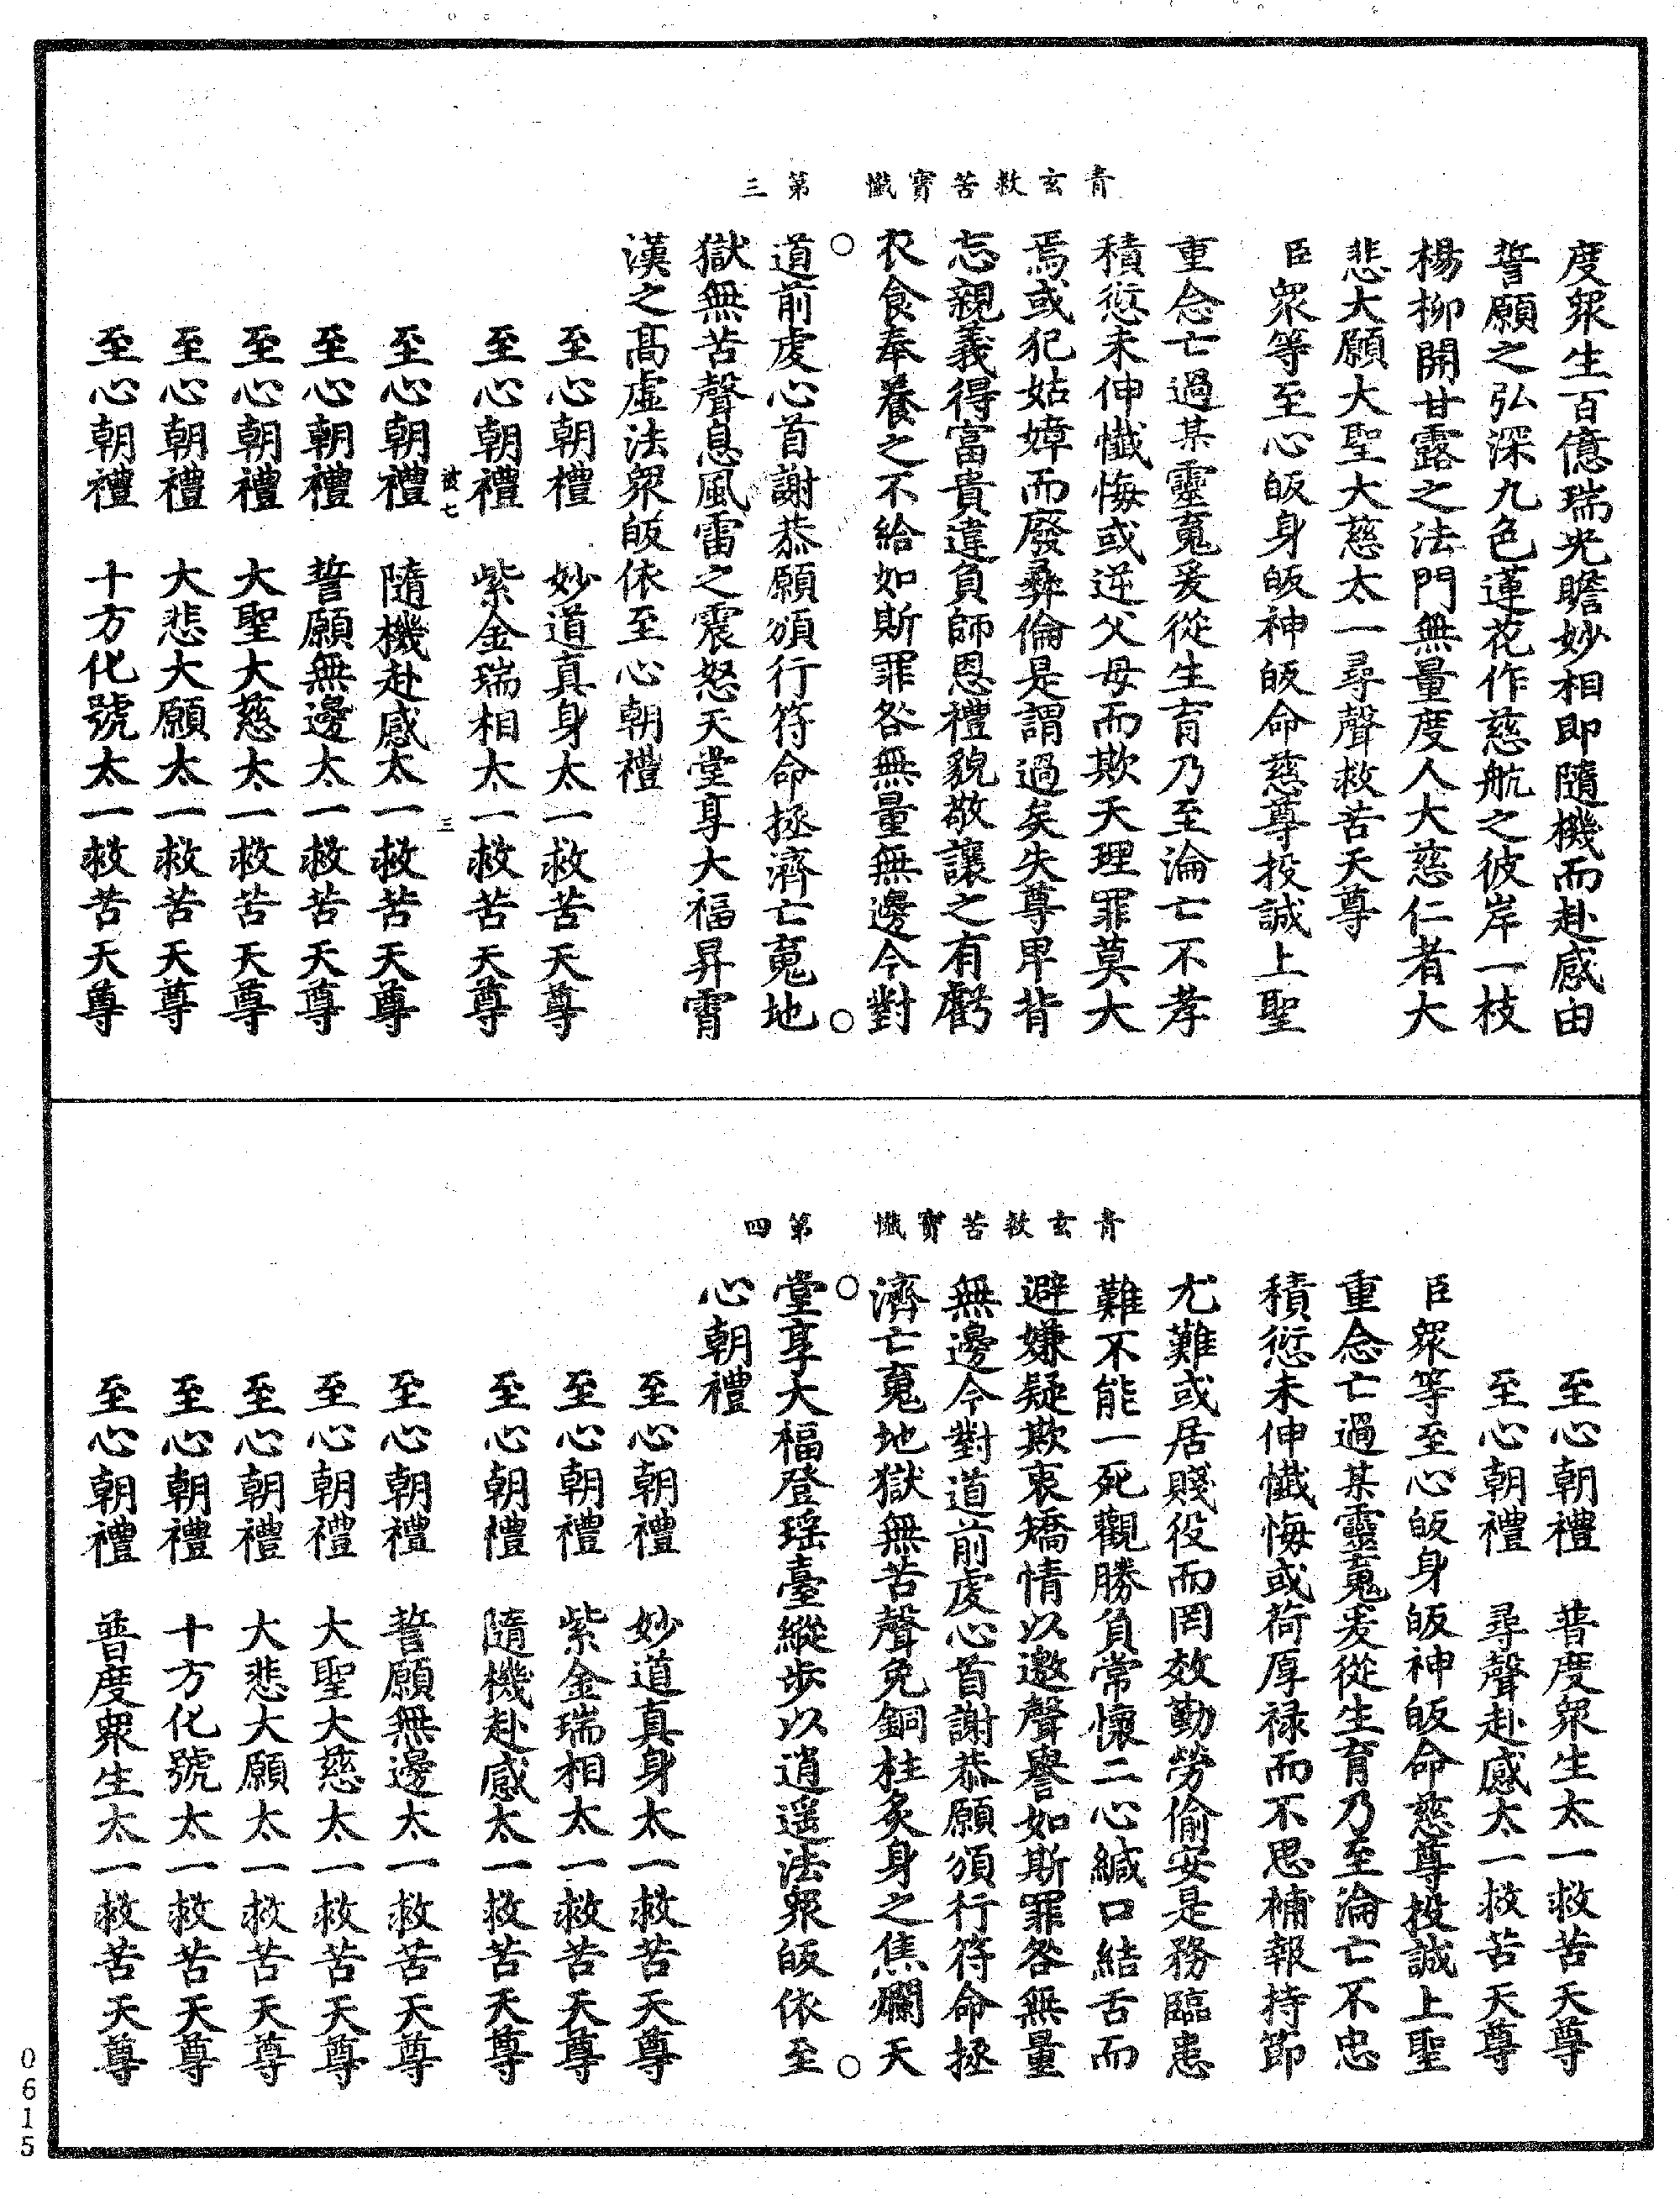 度衆生百億瑞光瞻妙相即隨機而赴感由
誓願之弘深九色蓮花作慈航之彼岸一枝
楊柳開甘露之法門無量度人大慈仁者大
悲大願大聖大慈太一尋聲救苦天尊
臣衆等至心皈身皈神皈命慈尊投誠上聖
重念亡過某靈䰟爰從生育乃至淪亡不孝
積愆未伸懺悔或逆父母而欺天理罪莫大
焉或犯姑嫜而廢彞倫是謂過矣失尊卑背
忘親義得富貴違負師恩禮貌敬讓之有虧
衣食奉養之不給如斯罪咎無量無邊今對
青玄救苦寶懺 第三
道前虔心首謝恭願頒行符命拯濟亡䰟地
獄無苦聲息風雷之震怒天堂享大福昇霄
漢之高虛法衆皈依至心朝禮
至心朝禮 妙道真身太一救苦天尊
至心朝禮 紫金瑞相太一救苦天尊
七 三
至心朝禮 隨機赴感太一救苦天尊
至心朝禮 誓願無邊太一救苦天尊
至心朝禮 大聖大慈太一救苦天尊
至心朝禮 大悲大願太一救苦天尊
至心朝禮 十方化號太一救苦天尊
至心朝禮 普度衆生太一救苦天尊
至心朝禮 尋聲赴感太一救苦天尊
臣衆等至心皈身皈神皈命慈尊投誠上聖
重念亡過某靈䰟爰從生育乃至淪亡不忠
積愆未伸懺悔或荷厚禄而不思補報持節
尤難或居賤役而罔效勤勞偷安是務臨患
難不能一死觀勝負常懷二心緘口結舌而
避嫌疑欺衷矯情以邀聲譽如斯罪咎無量
無邊今對道前虔心首謝恭願頒行符命拯
濟亡䰟地獄無苦聲免銅柱炙身之焦爛天
青玄救苦寶懺 第四
堂享大福登瑶臺縱步以逍遥法衆皈依至
心朝禮
至心朝禮 妙道真身太一救苦天尊
至心朝禮 紫金瑞相太一救苦天尊
至心朝禮 隨機赴感太一救苦天尊
至心朝禮 誓願無邊太一救苦天尊
至心朝禮 大聖大慈太一救苦天尊
至心朝禮 大悲大願太一救苦天尊
至心朝禮 十方化號太一救苦天尊
至心朝禮 普度衆生太一救苦天尊
0615